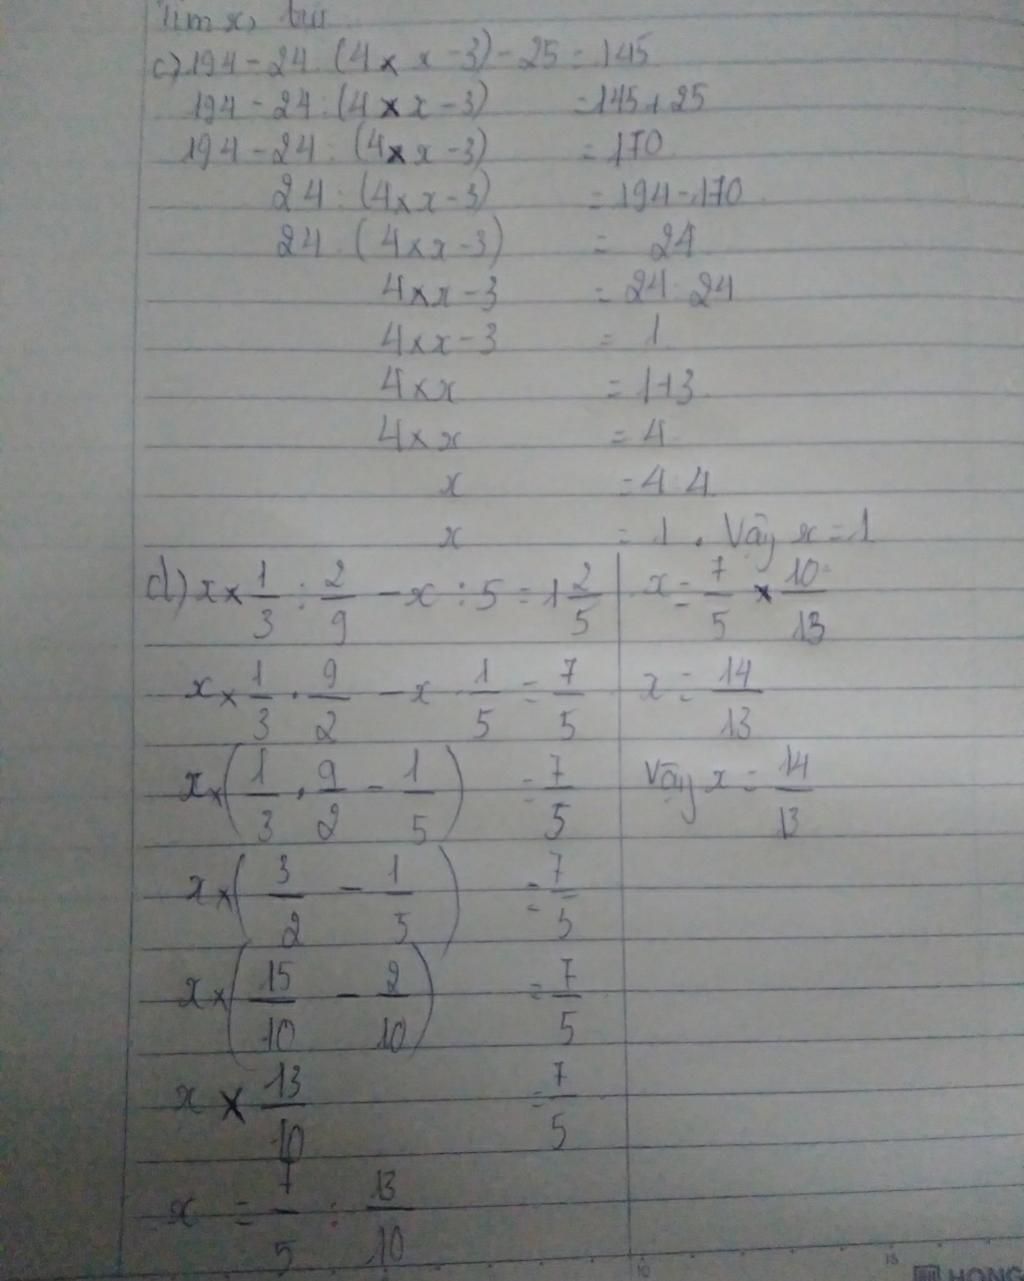 Tìm x, biết
c) 194 - 24 : (4 × x - 3) - 25 = 145
194 - 24 : (4 × x - 3) = 145 + 25
194 - 24 : (4 × x - 3) = 170
24 : (4 × x - 3) = 194 - 170
24 : (4 × x - 3) = 24
4 × x - 3 = 24 : 24
4 × x - 3 = 1
4 × x = 1 + 3
4 × x = 4
x = 4 : 4
x = 1. Vậy x = 1
d) x × 1/3 : 2/9 - x : 5 = 1 2/5
x × 1/3 · 9/2 - x · 1/5 = 7/5
x × (1/3 · 9/2 - 1/5) = 7/5
x × (3/2 - 1/5) = 7/5
x × (15/10 - 2/10) = 7/5
x × 13/10 = 7/5
x = 7/5 : 13/10
x = 7/5 × 10/13
x = 14/13
Vậy x = 14/13
10 15
HONG